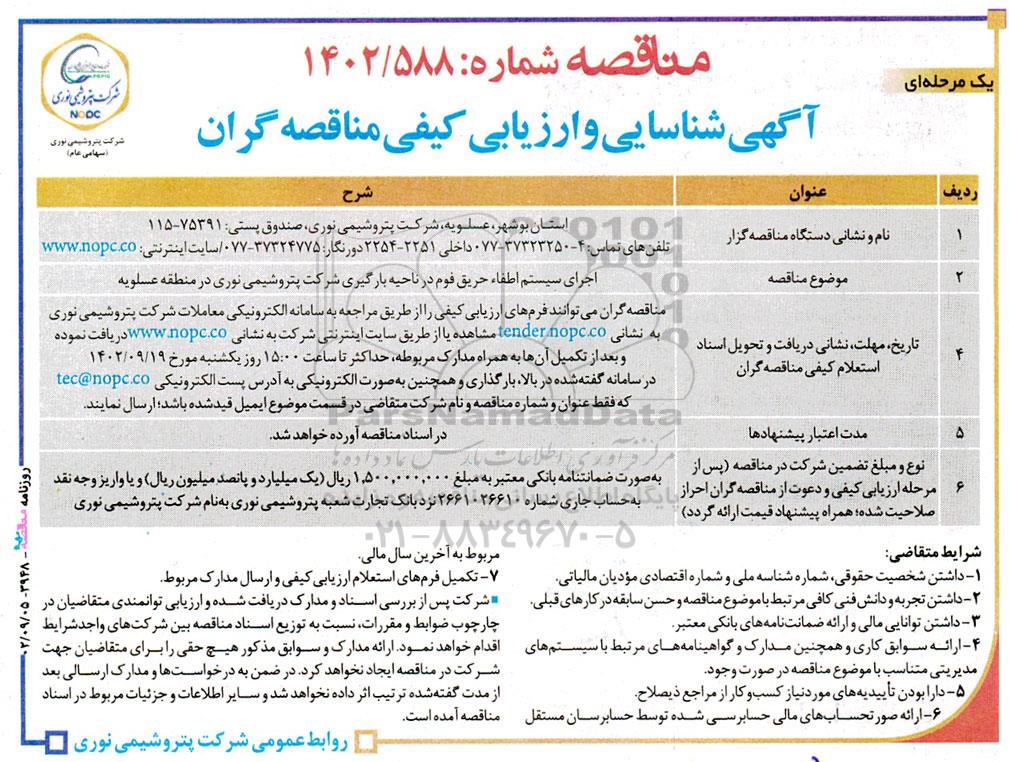 مناقصه شماره: ۱۴۰۲/۵۸۸
یک مرحله‌ای
شرکت پتروشیمی نوری
NOPC
شرکت پتروشیمی نوری
(سهامی عام)
آگهی شناسایی و ارزیابی کیفی مناقصه گران
ردیف عنوان شرح
۱ نام و نشانی دستگاه مناقصه‌گزار
استان بوشهر، عسلویه، شرکت پتروشیمی نوری، صندوق پستی: ۷۵۳۹۱-۱۱۵
تلفن‌های تماس: ۴-۳۷۳۲۳۲۵۰-۰۷۷ داخلی ۲۲۵۱-۲۲۵۴ دورنگار: ۳۷۳۲۴۷۷۵-۰۷۷/سایت اینترنتی: www.nopc.co
۲ موضوع مناقصه
اجرای سیستم اطفاء حریق فوم در ناحیه بارگیری شرکت پتروشیمی نوری در منطقه عسلویه
۴ تاریخ، مهلت، نشانی دریافت و تحویل اسناد
استعلام کیفی مناقصه‌گران
مناقصه‌گران می‌توانند فرم‌های ارزیابی کیفی را از طریق مراجعه به سامانه الکترونیکی معاملات شرکت پتروشیمی نوری
به نشانی tender.nopc.co مشاهده یا از طریق سایت اینترنتی شرکت به نشانی www.nopc.co دریافت نموده
و بعد از تکمیل آن‌ها به همراه مدارک مربوطه، حداکثر تا ساعت ۱۵:۰۰ روز یکشنبه مورخ ۱۴۰۲/۰۹/۱۹
در سامانه گفته‌شده در بالا، بارگذاری و همچنین به‌صورت الکترونیکی به آدرس پست الکترونیکی tec@nopc.co
که فقط عنوان و شماره مناقصه و نام شرکت متقاضی در قسمت موضوع ایمیل قیدشده باشد؛ ارسال نمایند.
۵ مدت اعتبار پیشنهادها
در اسناد مناقصه آورده خواهد شد.
۶ نوع و مبلغ تضمین شرکت در مناقصه (پس از
مرحله ارزیابی کیفی و دعوت از مناقصه‌گران احراز
صلاحیت شده؛ همراه پیشنهاد قیمت ارائه گردد)
به‌صورت ضمانتنامه بانکی معتبر به مبلغ ۱,۵۰۰,۰۰۰,۰۰۰ ریال (یک میلیارد و پانصد میلیون ریال) و یا واریز وجه نقد
به‌حساب جاری شماره ۲۶۶۱۰۲۶۶۱۰ نزد بانک تجارت شعبه پتروشیمی نوری به‌نام شرکت پتروشیمی نوری
ParsNamadData
مرکز فرآوری اطلاعات پارس نماد داده‌ها
۰۲۱-۸۸۳۴۹۶۷۰-۵
شرایط متقاضی:
۱- داشتن شخصیت حقوقی، شماره شناسه ملی و شماره اقتصادی مؤدیان مالیاتی.
۲- داشتن تجربه و دانش فنی کافی مرتبط با موضوع مناقصه و حسن سابقه در کارهای قبلی.
۳- داشتن توانایی مالی و ارائه ضمانت‌نامه‌های بانکی معتبر.
۴- ارائه سوابق کاری و همچنین مدارک و گواهینامه‌های مرتبط با سیستم‌های
مدیریتی متناسب با موضوع مناقصه در صورت وجود.
۵- دارا بودن تأییدیه‌های موردنیاز کسب‌وکار از مراجع ذیصلاح.
۶- ارائه صورتحساب‌های مالی حسابرسی شده توسط حسابرسان مستقل
مربوط به آخرین سال مالی.
۷- تکمیل فرم‌های استعلام ارزیابی کیفی و ارسال مدارک مربوط.
شرکت پس از بررسی اسناد و مدارک دریافت شده و ارزیابی توانمندی متقاضیان در
چارچوب ضوابط و مقررات، نسبت به توزیع اسناد مناقصه بین شرکت‌های واجد‌شرایط
اقدام خواهد نمود. ارائه مدارک و سوابق مذکور هیچ حقی را برای متقاضیان جهت
شرکت در مناقصه ایجاد نخواهد کرد. در ضمن به درخواست‌ها و مدارک ارسالی بعد
از مدت گفته‌شده ترتیب اثر داده نخواهد شد و سایر اطلاعات و جزئیات مربوط در اسناد
مناقصه آمده است.
روابط عمومی شرکت پتروشیمی نوری
روزنامه مناقصه - ۳۹۴۸ - ۰۲/۰۹/۰۵